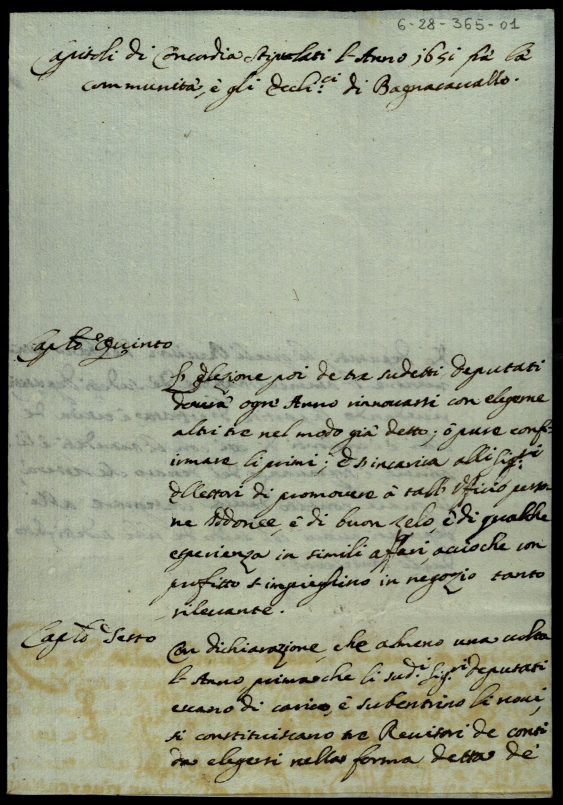 6-28-365-01
Capitoli di Concordia stipolati l'Anno 1651 frà la
communità, è gli Eccli.ci di Bagnacavallo.
Caplo Quinto
L'elezione poi de tre sudetti deputati
dovrà ogni Anno rinnovarsi con elegerne
altri tre nel modo già detto; ò pure conf-
irmare li primi; è s'incarica alli Sig.ri
Ellettori di promovere à tall'Officio perso-
ne Idonee, è di buon zelo è di qualche
esperienza in simili affari, acioche con
profitto s'impieghino in negozio tanto
rilevante.
Caplo Sesto
Con dichiarazione, che almeno una volta
l'Anno prima che li sud.i Sig.ri deputati
escano di carico, è subentrino li novi,
si constituiscano tre Revisori de conti
da elegersi nella forma detta de